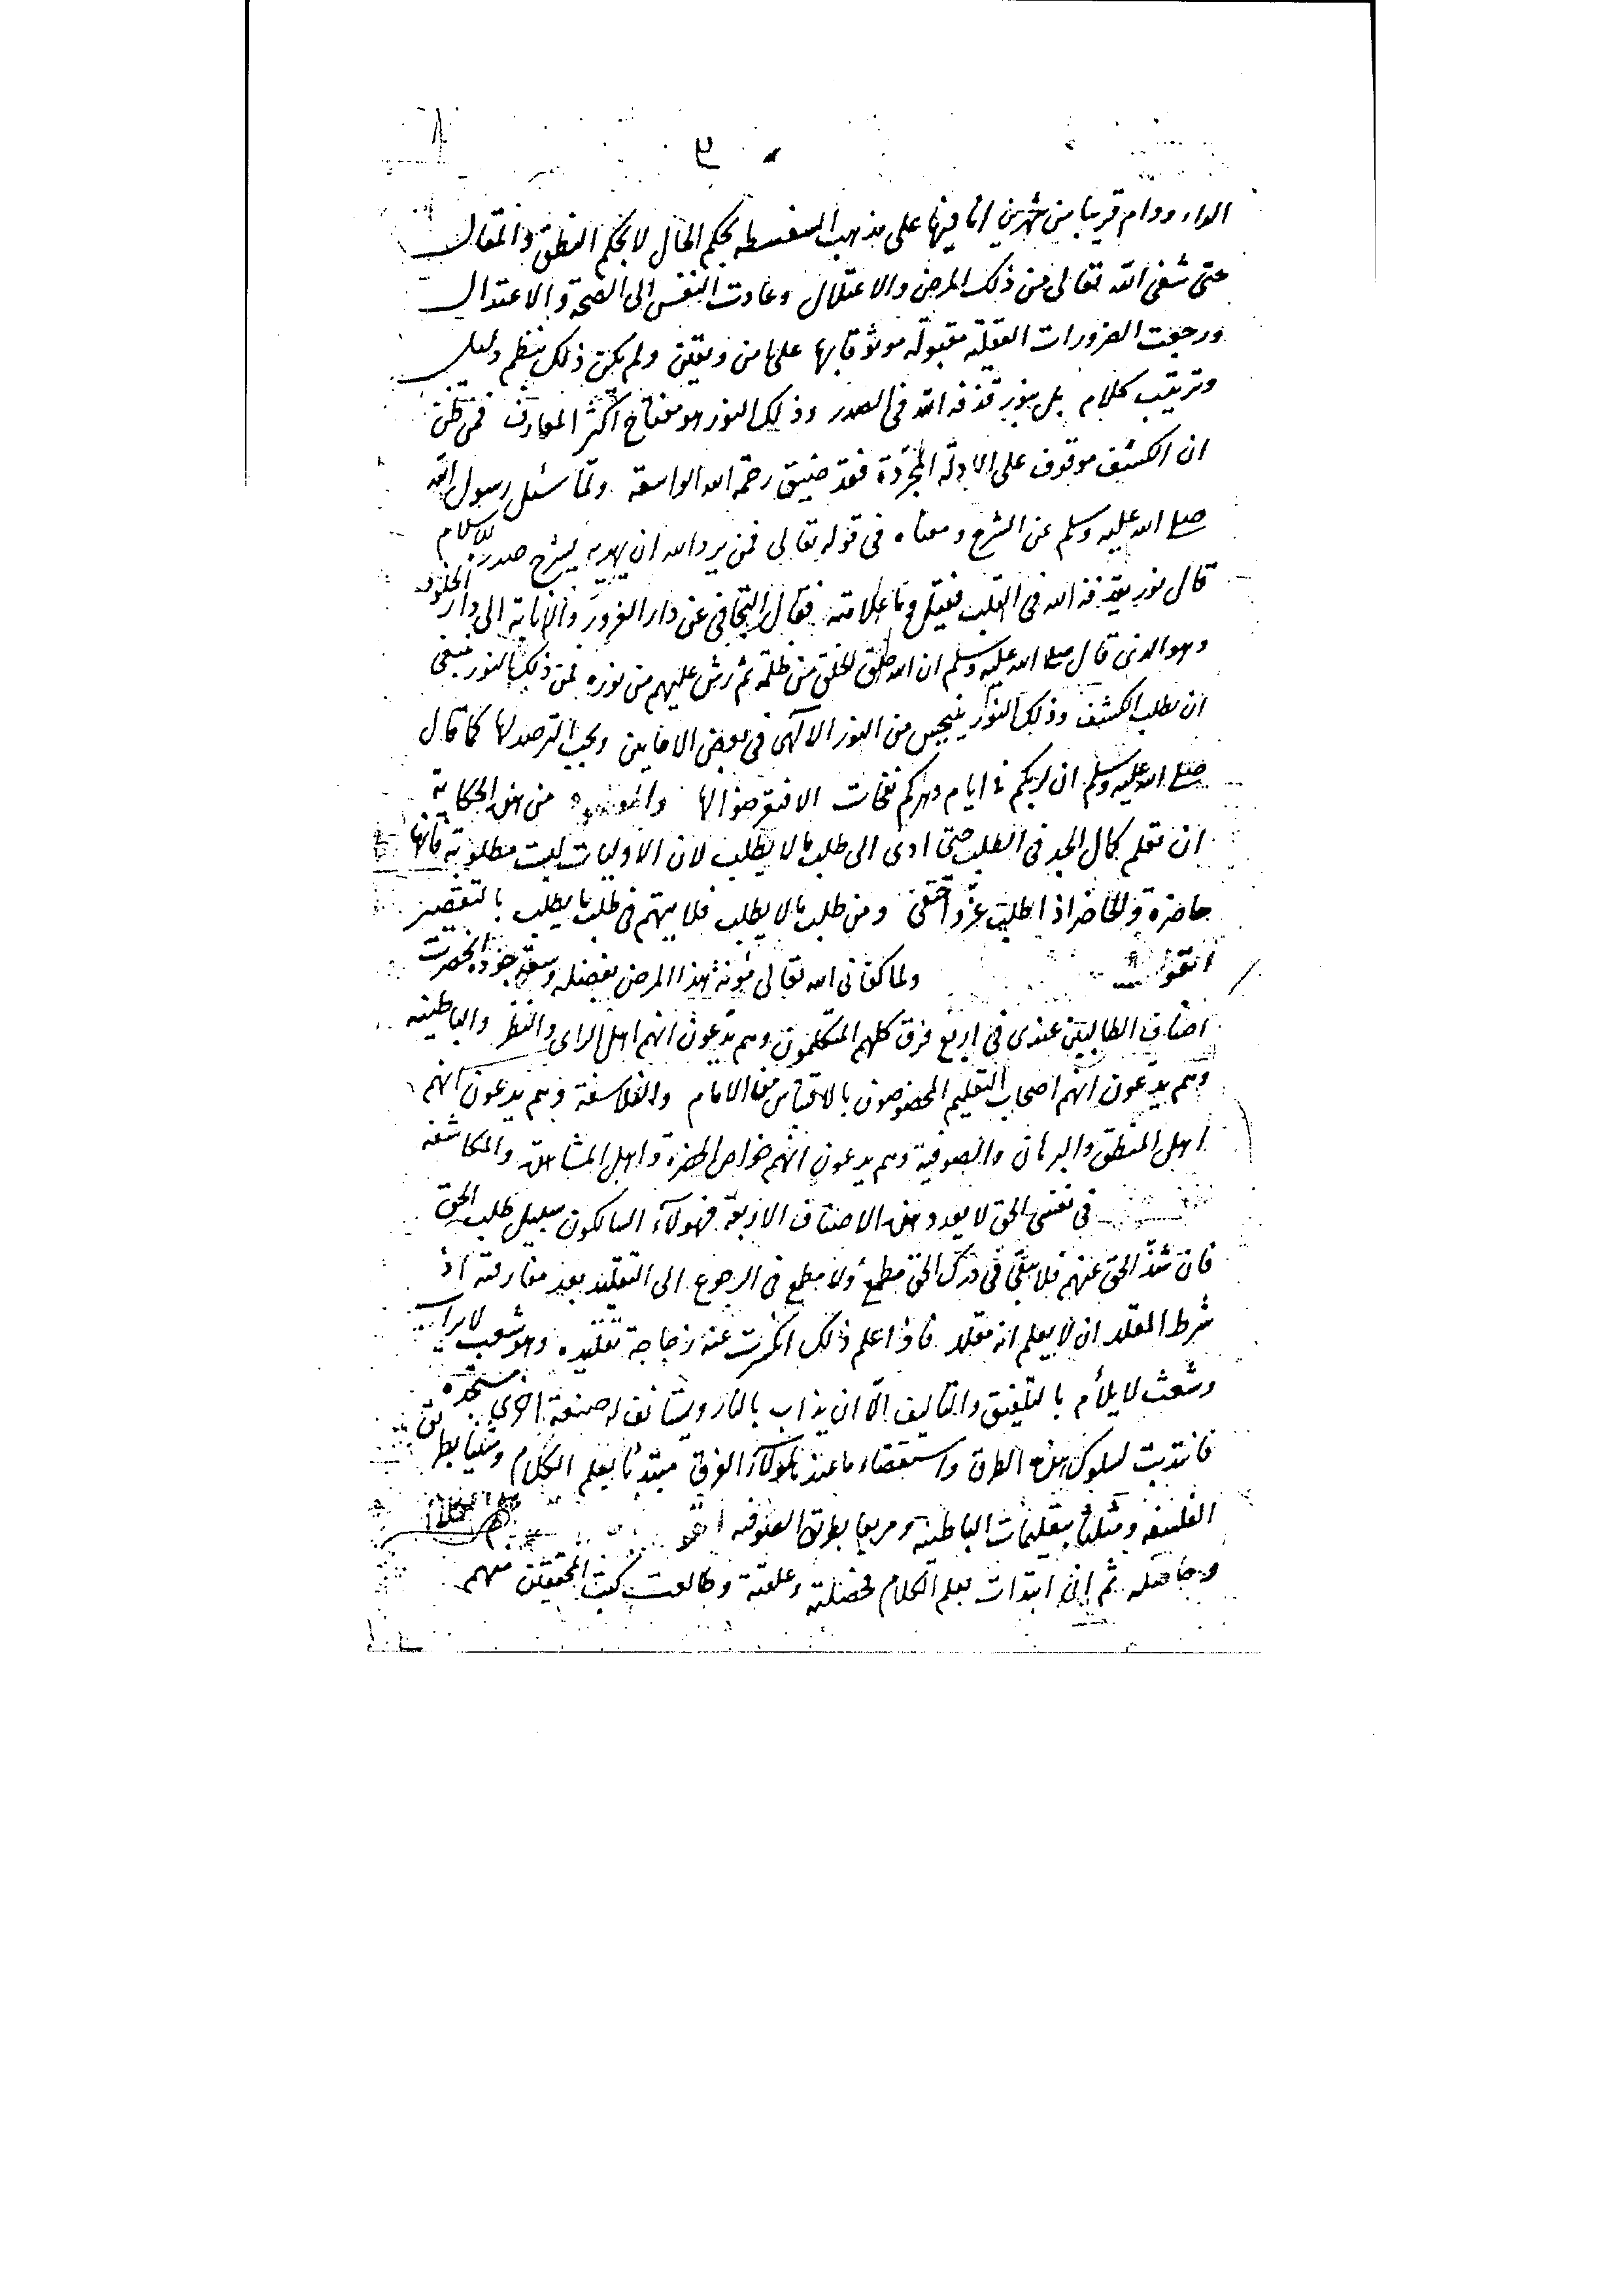 الداء ودام قريبا من شهرين انا فيها على مذهب السفسطه بحكم الحال لا بحكم النطق والمقال
حتى شفى الله تعالى من ذلك المرض والاعتلال وعادت النفس الى الصحة والاعتدال
ورجعت الضرورات العقلية مقبولة موثوقا بها على امن ويقين ولم يكن ذلك بنظم دليل
وترتيب كلام بل بنور قذفه الله فى الصدر وذلك النور هو مفتاح اكثر المعارف فمن ظن
ان الكشف موقوف على الادلة المجردة فقد ضيق رحمة الله الواسعة ولما سئل رسول الله
صلى الله عليه وسلم عن الشرح ومعناه فى قوله تعالى فمن يرد الله ان يهديه يشرح صدره للاسلام
قال نور يقذفه الله فى القلب فقيل وما علامته فقال التجافى عن دار الغرور والانابة الى دار الخلود
وهو الذى قال صلى الله عليه وسلم ان الله خلق الخلق من ظلمة ثم رش عليهم من نوره فمن ذلك النور ينبغى
ان يطلب الكشف وذلك النور ينبجس من النور الالهى فى بعض الاحايين ويجب الترصد لها كما قال
صلى الله عليه وسلم ان لربكم فى ايام دهركم نفحات الا فتعرضوا لها والمقصود من هذه الحكاية
ان تعلم كمال الجد فى الطلب حتى ادى الى طلب ما لا يطلب لان الاوليات ليست مطلوبة فانها
حاضرة والحاضر اذا طلب عزّ واختفى ومن طلب ما لا يطلب فلا يتهم فى طلب ما يطلب بالتقصير
القول ولما كفانى الله تعالى مؤنة هذا المرض بفضله وسعة جوده انحصرت
اصناف الطالبين عندى فى اربع فرق كلهم المتكلمون وهم يدّعون انهم اهل الراى والنظر والباطنيه
وهم يدّعون انهم اصحاب التعليم المخصوصون بالاقتباس من الامام والفلاسفة وهم يدعون انهم
اهل المنطق والبرهان والصوفية وهم يدعون انهم خواص الحضرة واهل المشاهدة والمكاشفه
فى نفسى الحق لا يعدو هذه الاصناف الاربعة فهولآء السالكون سبيل طلب الحق
فان شذّ الحق عنهم فلا يبقى فى درك الحق مطمع ولا مطمع فى الرجوع الى التقليد بعد مفارقته اذ
شرط المقلد ان لا يعلم انه مقلد فاذا علم ذلك انكسرت عنه زجاجة تقليده وهو شعب لا يراب
وشعث لا يلأم بالتلفيق والتاليف الّا ان يذاب بالنار ويستانف له صنعة اخرى مستجده
فانتدبت لسلوك هذه الطرق واستقصاء ما عند هولآء الفرق مبتدئا بعلم الكلام ومثنيا بطرق
الفلسفة ومثلثا بتعليمات الباطنية ومربعا بطرق الصوفيه القول
وحاصله ثم انى ابتدات بعلم الكلام فحصلته وعلقته وطالعت كتب المحققين منهم